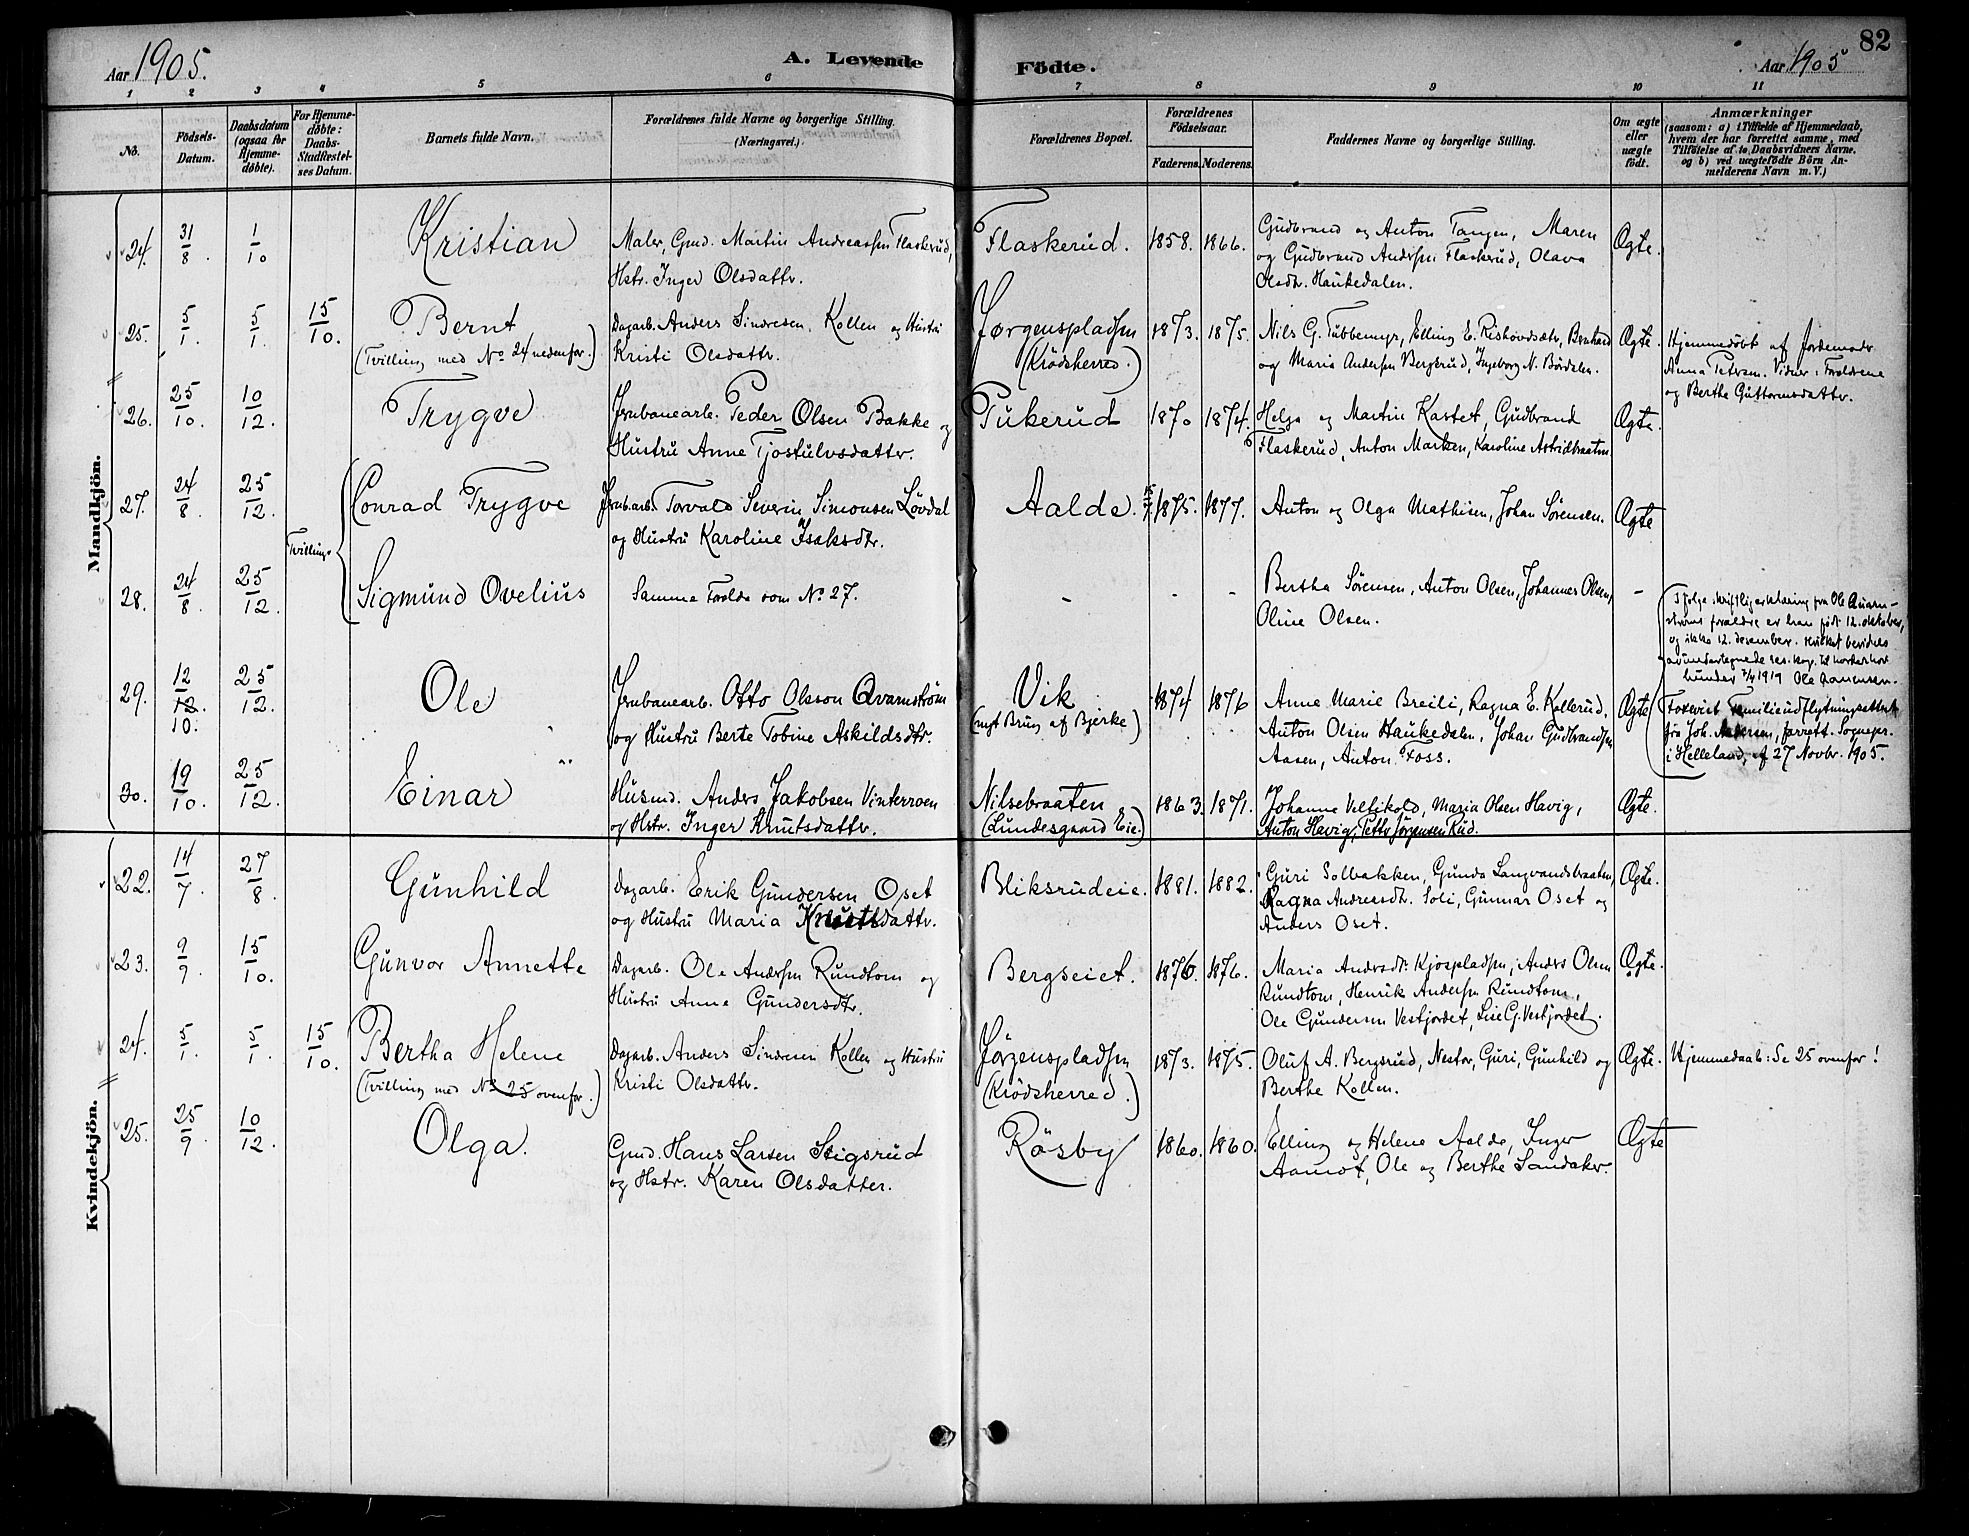 Aar 1905.
A. Levende Födte.
Aar 1905
82
1 2 3 4 5 6 7 8 9 10 11
No.
Födsels-Datum.
Daabsdatum (ogsaa for Hjemme-döbte).
For Hjemme-döbte: Daabs-Stadfæstel-ses Datum.
Barnets fulde Navn.
Forældrenes fulde Navne og borgerlige Stilling. (Næringsvei.)
Forældrenes Bopæl.
Forældrenes Födselsaar.
Faderens. Moderens.
Faddernes Navne og borgerlige Stilling.
Om ægte eller uægte født.
Anmærkninger
(saasom: a) i Tilfælde af Hjemmedaab, hvem der har forrettet samme, med Tilföielse af to Daabsvidners Navne, og b) ved uægtefödte Börn An-melderens Navn m. V.)
Mandkjön.
24. 31/8. 1/10 Kristian
Maler, Gmd. Martin Andreassen Flaskerud,
Hstr. Inger Olsdattr.
Flaskerud. 1858. 1866.
Gudbrand og Anton Tangen, Maren
og Gudbrand Andersen Flaskerud, Olava
Olsdtr. Haukedalen.
Ægte.
25. 5/1. 5/1. 15/10. Bernt
(Tvilling med No 24 nedenfor.)
Dagarb. Anders Sindresen Kollen og Hustru
Kristi Olsdattr.
Jørgenspladsen
(Krödsherred.)
1873. 1875.
Nils G. Tubbemyr, Elling E. Rishovdsætr, Bernhard
og Maria Andersen Bergsrud, Ingeborg N. Bördalen.
Ægte.
Hjemmedöbt af Jordemodr
Anna Petersen. Vidner: Forældrene
og Berthe Guttormsdattr.
26. 25/10. 10/12. Trygve
Jernbanearb. Peder Olsen Bakke og
Hustru Anne Tjostulvsdattr.
Tukerud 1870 1874.
Helga og Martin Kastet, Gudbrand
Flaskerud, Anton Marken, Karoline Astridbraaten
Ægte.
27. 24/8. 25/12. Tvillinge Conrad Trygve
Jernb.arb. Torvald Severin Simonsen Lövdal
og Hustru Karoline Isaksdtr.
Aalde. 1875. 1877.
Anton og Olga Mathisen, Johan Sörensen.
Ægte
28. 24/8. 25/12. Sigmund Ovelius
Samme Forælde som No 27.
- - -
Bertha Sörensen, Anton Olsen, Johannes Olsen,
Oline Olsen.
-
Ifölge skriftlig erklæring fra Ole Quarn-
ströms forældre er han födt 12. oktober,
og ikke 12. desember. Hvilket bevidnes
av undertegnede res. kap. til Norderhov
hundur 7/4 1919 Ole
29. 12/12. 10. 25/12. Ole
Jernbanearb. Otto Olsson Qvarnström
og Hustru Berte Tobine Askildsdtr.
Vik
(nyt Brug af Bjerke)
1874 1876
Anne Marie Breili, Ragna E. Kollerud,
Anton Olsen Haukedalen, Johan Gudbrandsen
Aasen, Anton Foss.
Ægte
Forevist Familieudflytningsattest
fra Joh. Andersen, forrett. Sognepr.
i Helleland, af 27 Novbr. 1905.
30. 19/10. 25/12. Einar
Husmd. Anders Jakobsen Vinterroen
og Hstr. Inger Knutsdattr.
Nilsebraaten
(Lundesgaard Eie.)
1863. 1871.
Johanne Vellikold, Maria Olsen Havig,
Anton Havig, Petter Jörgensen Rud.
Ægte.
Kvindekjön.
22. 14/7. 27/8. Gunhild
Dagarb. Erik Gundersen Oset
og Hustru Maria Knutsdattr.
Bliksrudeie. 1881. 1882.
Guri Solbakken, Gunda Langvandsbraaten,
Ragna Andreasdtr. Soli, Gunnar Oset og
Anders Oset.
Ægte.
23. 9/9. 15/10. Gunvor Annette
Dagarb. Ole Andersen Rundtom og
Hustru Anne Gundersdtr.
Bergseiet. 1876. 1876.
Maria Andersdtr. Kjospladsen, Anders Olsen
Rundtom, Henrik Andersen Rundtom,
Ole Gundersen Vestjordet, Lise G. Vestjordet.
Ægte.
24. 5/1. 5/1. 15/10. Bertha Helene
(Tvilling med No 25 ovenfor.)
Dagarb. Anders Sindresen Kollen og Hustru
Kristi Olsdattr.
Jörgenspladsen
(Krödsherred.)
1873. 1875.
Oluf A. Bergsrud, Nestor, Guri, Gunhild og
Berthe Kollen.
Ægte.
Hjemmedaab: Se 25 ovenfor!
25. 25/9. 10/12. Olga.
Gmd. Hans Larsen Stigsrud
og Hstr. Karen Olsdatter.
Rösby 1860. 1860.
Elling og Helene Aalde, Inger
Aamot, Ole og Berthe Sandaker.
Ægte